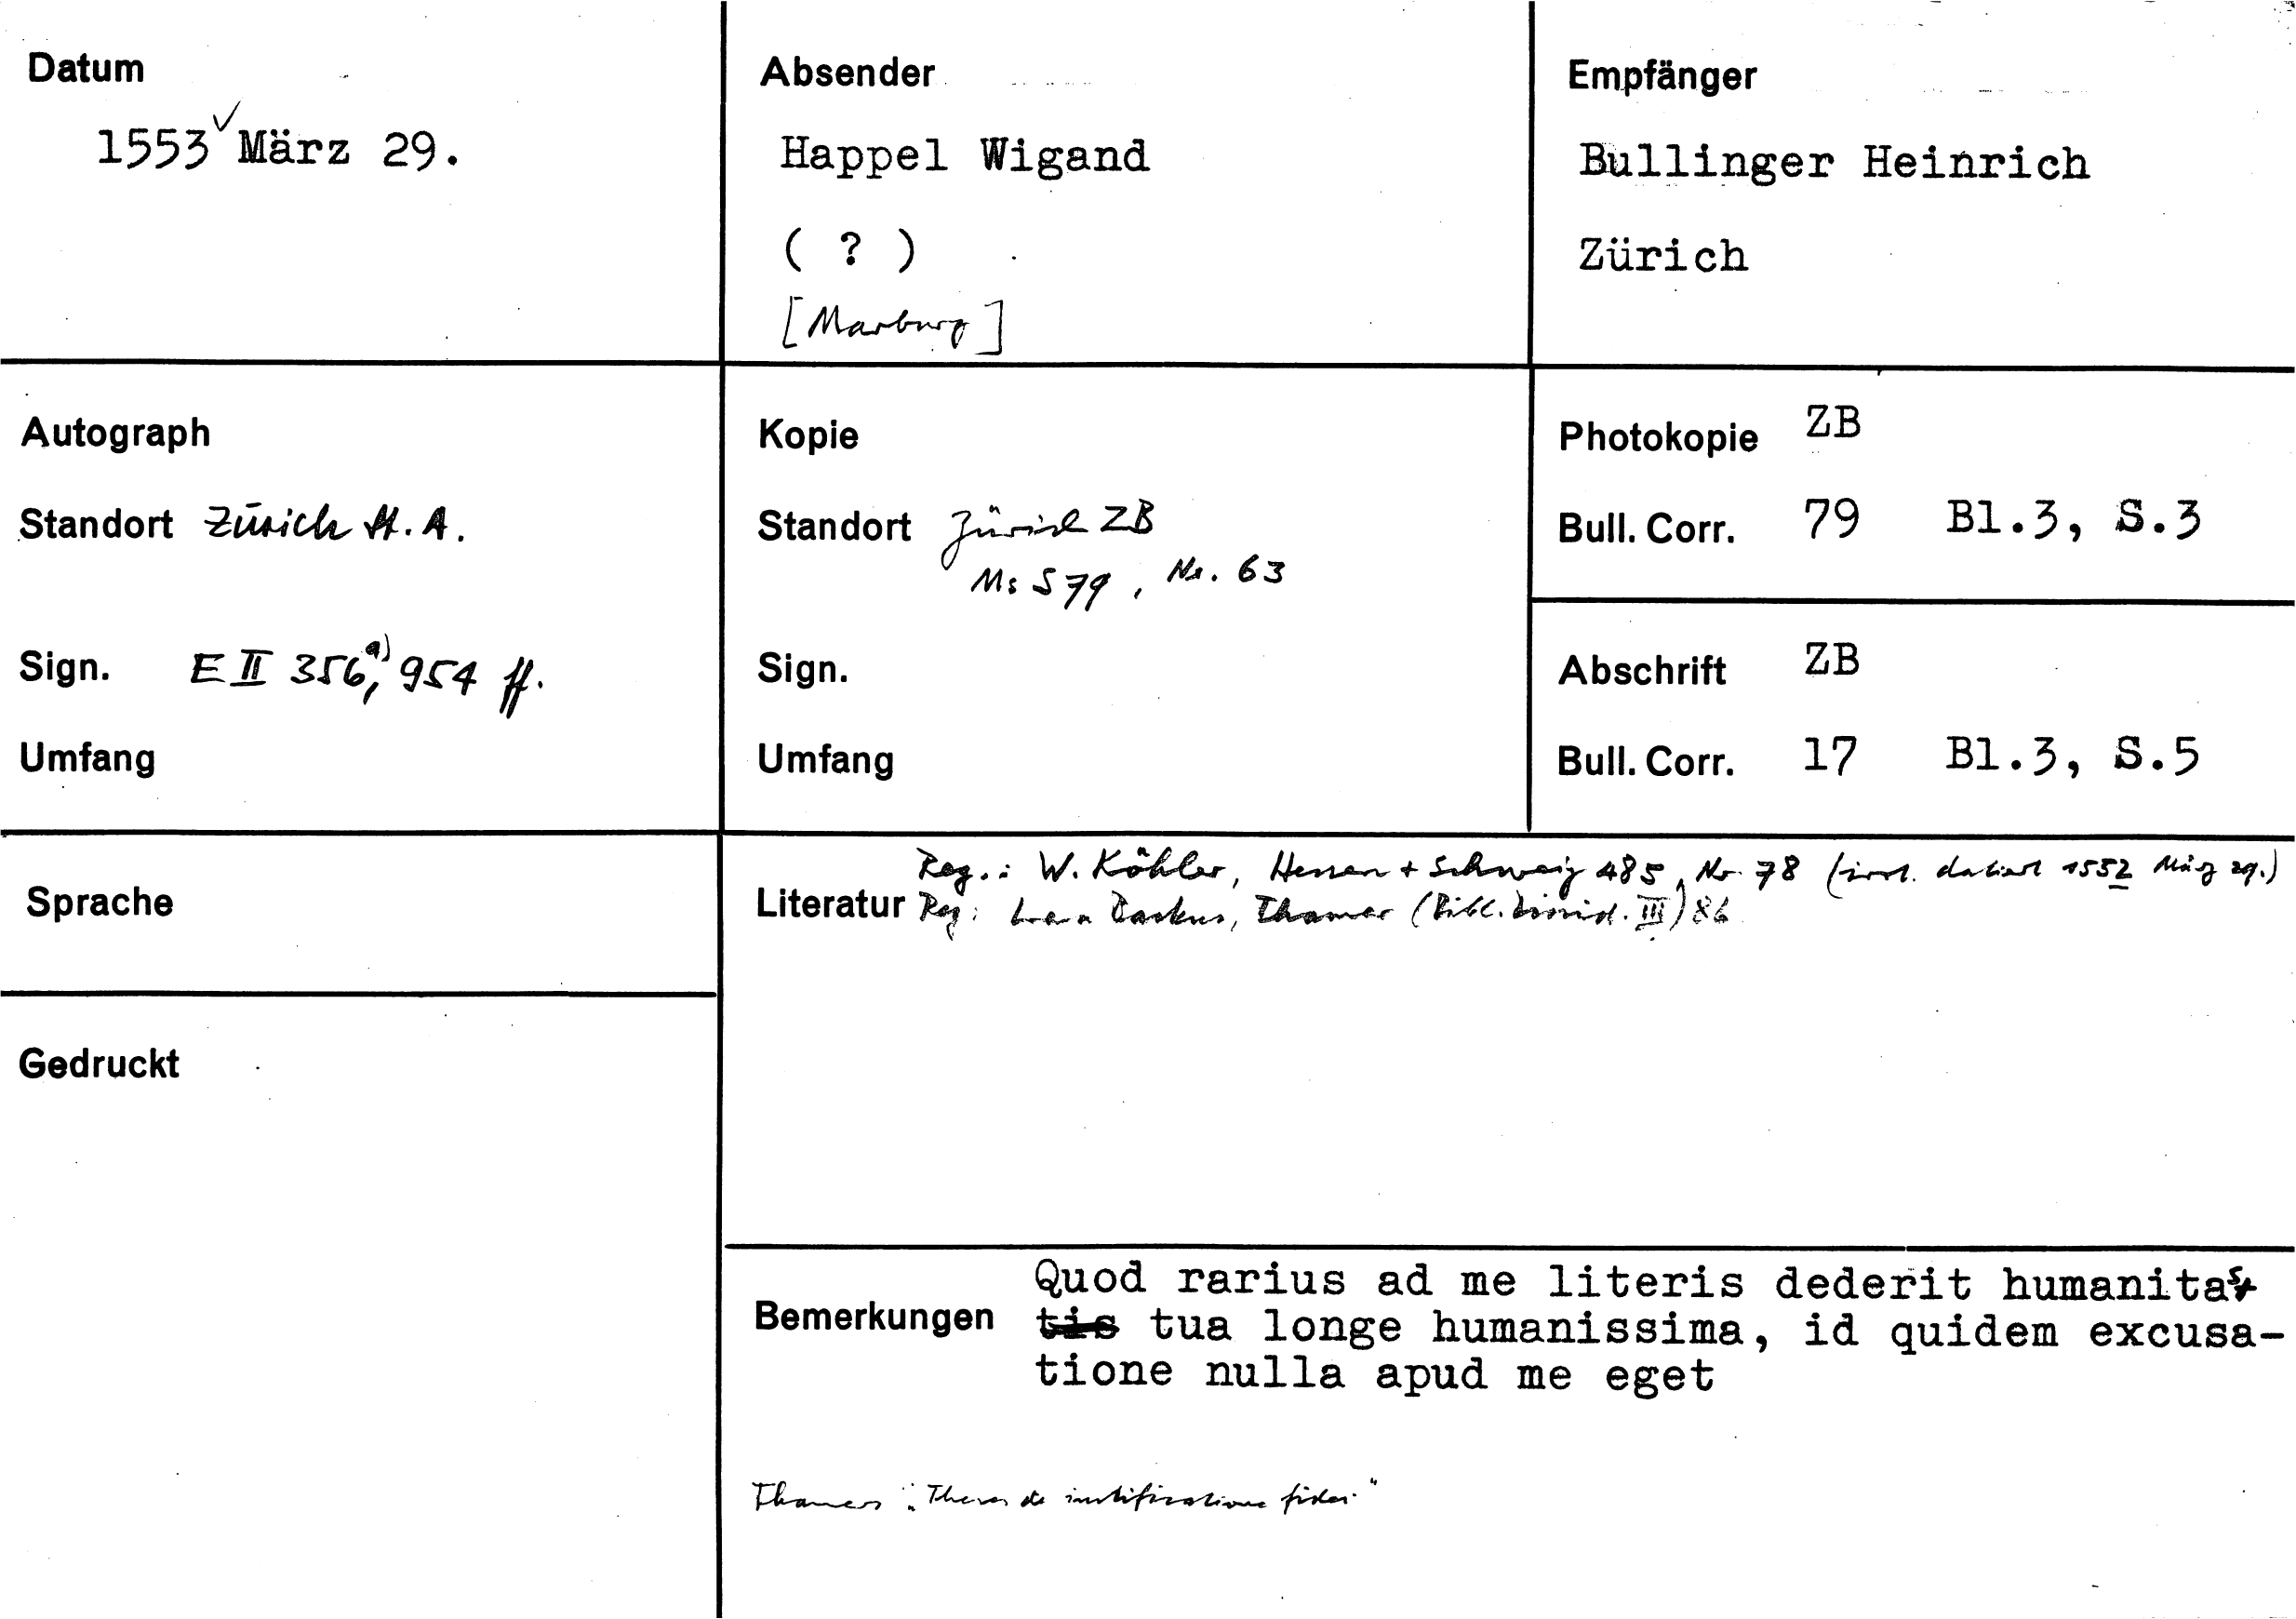 Datum
1553 März 29.
Absender
Happel Wigand
( ? )
[Marburg]
Empfänger
Bullinger Heinrich
Zürich
Autograph
Standort Zürich St. A.
Sign. E II 356a), 954 ff.
Umfang
Kopie
Standort Zürich ZB
Ms S 79, Nr. 63
Sign.
Umfang
Photokopie ZB
Bull. Corr. 79 Bl.3, S.3
Abschrift ZB
Bull. Corr. 17 Bl.3, S.5
Sprache
Gedruckt
Literatur
Reg.: W. Köhler, Hessen + Schweiz 485, Nr. 78 (irrt. datiert 1552 März 29.)
Reg: Thamer (Bibl. III) 86
Bemerkungen
Quod rarius ad me literis dederit humanitas
tis tua longe humanissima, id quidem excusa-
tione nulla apud me eget
Thamers "Theses de iustificatione fidei"